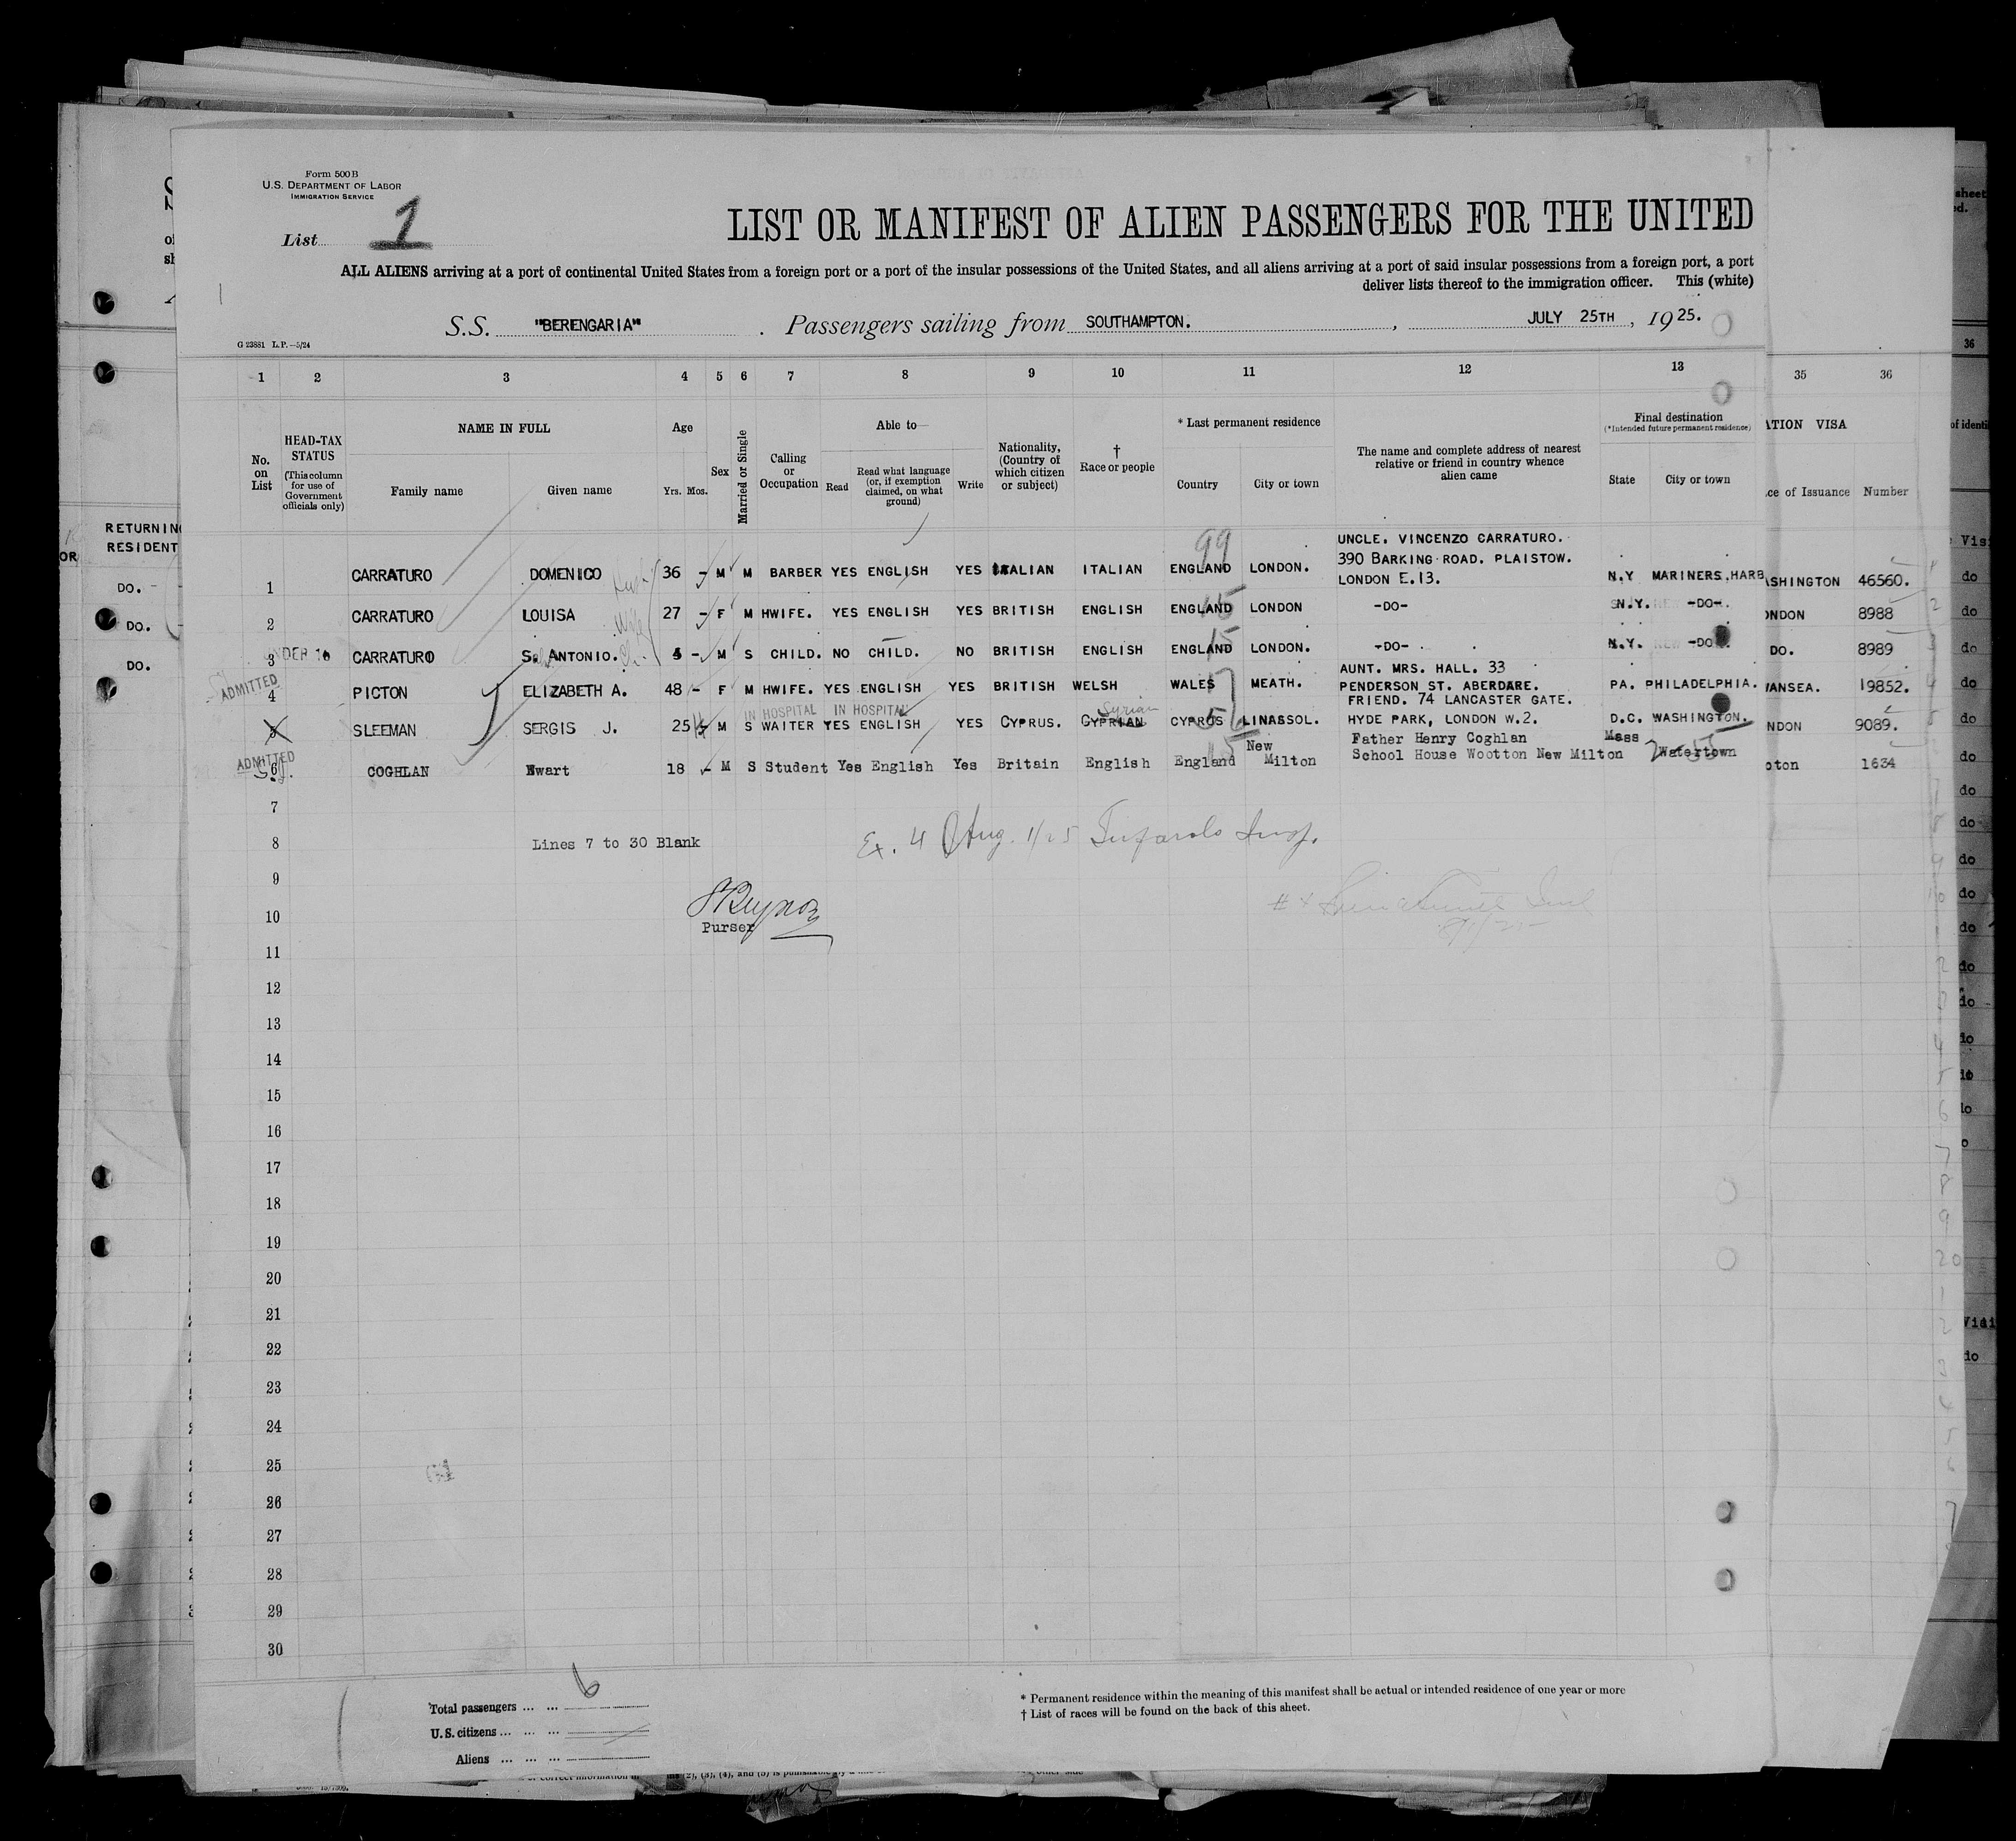 Form 500 B
U.S. DEPARTMENT OF LABOR
IMMIGRATION SERVICE
List 1
LIST OR MANIFEST OF ALIEN PASSENGERS FOR THE UNITED
ALL ALIENS arriving at a port of continental United States from a foreign port or a port of the insular possessions of the United States, and all aliens arriving at a port of said insular possessions from a foreign port, a port
deliver lists thereof to the immigration officer. This (white)
S.S. "BERENGARIA" . Passengers sailing from SOUTHAMPTON. , JULY 25TH , 1925.
G 23881 L.P.—5/24
1 2 3 4 5 6 7 8 9 10 11 12 13 35 36
No. on List
HEAD-TAX STATUS (This column for use of Government officials only)
NAME IN FULL
Family name Given name
Age
Yrs. Mos.
Sex
Married or Single
Calling or Occupation
Able to—
Read Read what language (or, if exemption claimed, on what ground) Write
Nationality, (Country of which citizen or subject)
† Race or people
* Last permanent residence
Country City or town
The name and complete address of nearest relative or friend in country whence alien came
Final destination
(*Intended future permanent residence)
State City or town
ATION VISA
ce of Issuance Number
RETURNIN
RESIDENT
DO.
DO.
DO.
1 CARRATURO DOMENICO 36 - M M BARBER YES ENGLISH YES ITALIAN ITALIAN ENGLAND 99 LONDON. UNCLE. VINCENZO CARRATURO. 390 BARKING ROAD. PLAISTOW. LONDON E.13. N.Y MARINERS.HARB ASHINGTON 46560.
2 CARRATURO LOUISA 27 - F M HWIFE. YES ENGLISH YES BRITISH ENGLISH ENGLAND 15 LONDON -DO- N.Y. -DO-. ONDON 8988
3 UNDER 16 CARRATURO S. ANTONIO. - M S CHILD. NO CHILD. NO BRITISH ENGLISH ENGLAND 15 LONDON. -DO- N.Y. -DO DO. 8989
ADMITTED
4 PICTON ELIZABETH A. 48 - F M HWIFE. YES ENGLISH YES BRITISH WELSH WALES MEATH. AUNT. MRS. HALL. 33 PENDERSON ST. ABERDARE. PA. PHILADELPHIA. WANSEA. 19852.
IN HOSPITAL IN HOSPITAL
5 SLEEMAN SERGIS J. 25 M S WAITER YES ENGLISH YES CYPRUS. CYPRIAN Syrian CYPROS LINASSOL. FRIEND. 74 LANCASTER GATE. HYDE PARK, LONDON W.2. D.C. WASHINGTON. NDON 9089.
ADMITTED
6 COGHLAN Ewart 18 - M S Student Yes English Yes Britain English England 15 New Milton Father Henry Coghlan School House Wootton New Milton Mass Watertown pton 1634
7
8 Lines 7 to 30 Blank
Ex. 4 Aug. 1/25
9
10
Purser
11
12
13
14
15
16
17
18
19
20
21
22
23
24
25
26
27
28
29
30
Total passengers ... ... 6
U.S. citizens ... ... ...
Aliens ... ... ...
* Permanent residence within the meaning of this manifest shall be actual or intended residence of one year or more
† List of races will be found on the back of this sheet.